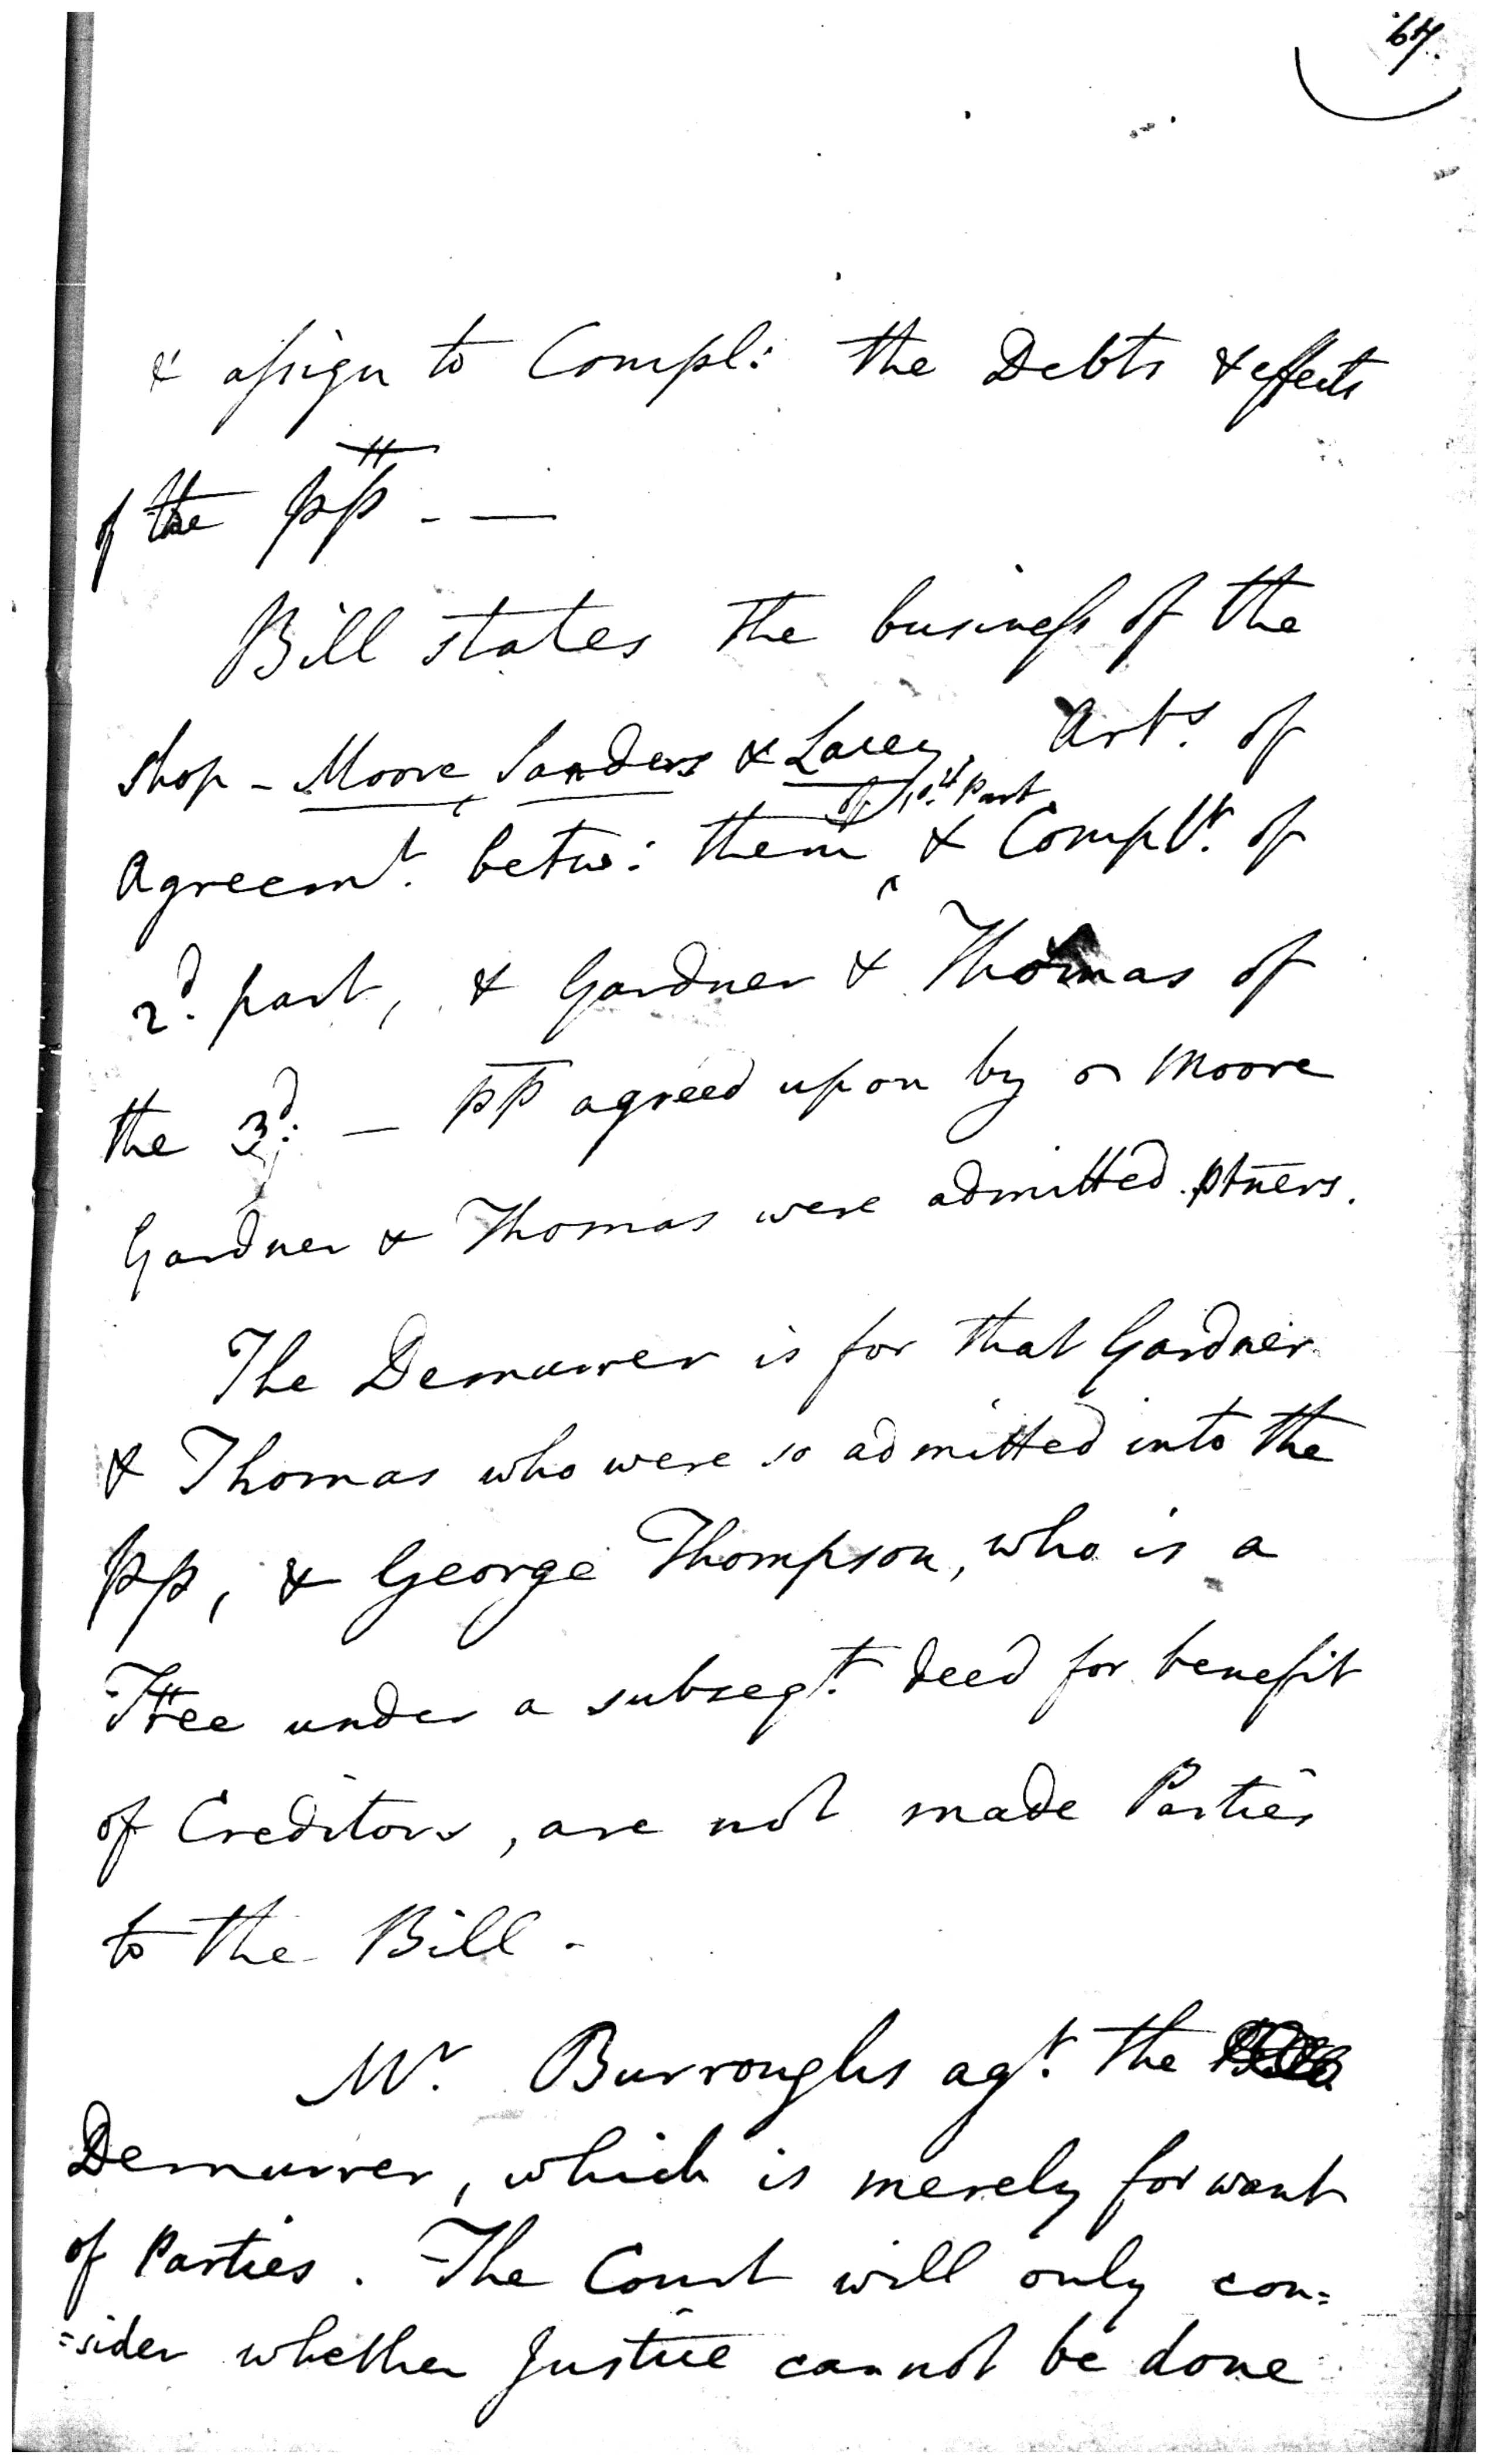 64.
& assign to Compl: the Debts & effects
of the pp - —
Bill states the business of the
shop - Moore, Sanders & Lacey. Arts. of
of 1st. Part
Agreemt. betw: them ^ & Complt. of
2d. part, & Gardner & Thomas of
the 3d: — pp agreed upon by Moore
Gardner & Thomas were admitted ptners.
The Demurrer is for that Gardner
& Thomas who were so admitted into the
pp, & George Thompson, who is a
Ttee under a subseqt. deed for benefit
of Creditors, are not made Parties
to the Bill.
Mr. Burroughs agt. the
Demurrer, which is merely for want
of Parties. The Court will only con=
=sider whether Justice cannot be done